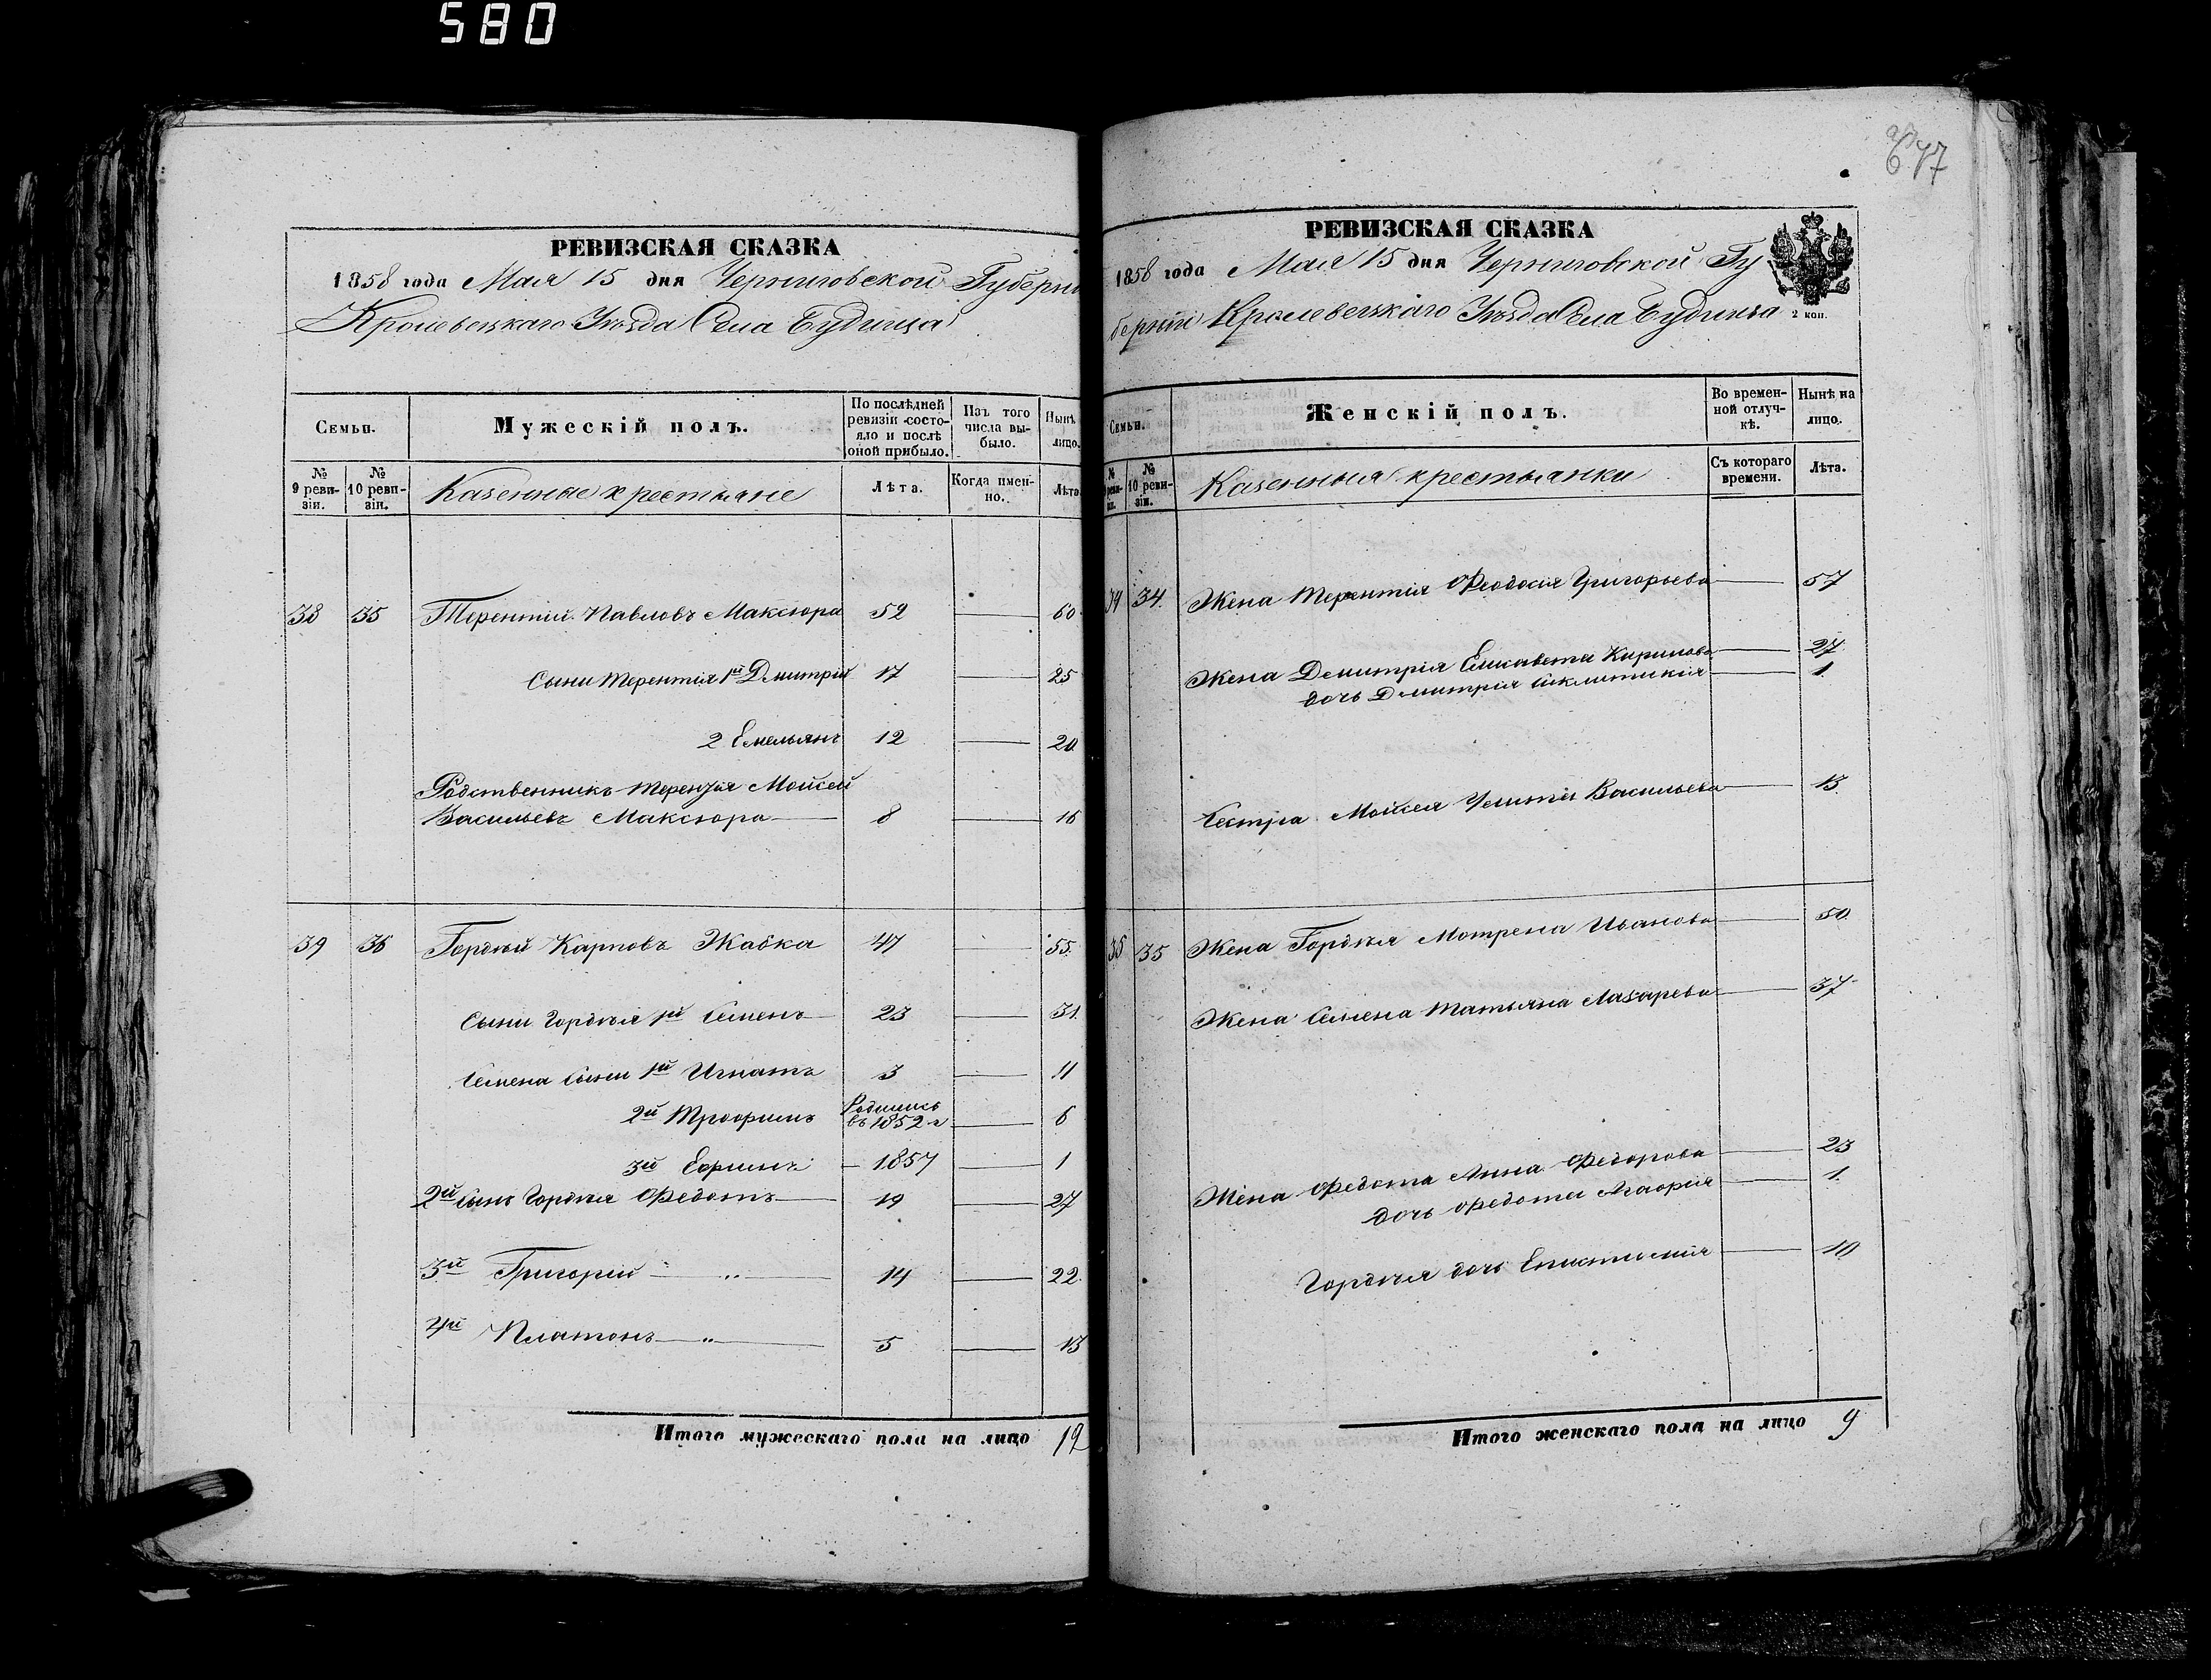 580
РЕВИЗСКАЯ СКАЗКА
1858 года Мая 15 дня Черниговской Губерн
Кролевецкаго Уѣзда Села Будища
Семьи.
Мужескій полъ.
По послѣдней ревизіи состояло и послѣ оной прибыло.
Изъ того числа выбыло.
Нынѣ лицо.
№ 9 ревизіи.
№ 10 ревизіи.
Казенные крестьяне
Лѣта.
Когда именно.
Лѣта
38 35 Терентій Павловъ Максюра 52 60
Сыны Терентія 1й Дмитрій 17 25
2 Емельянъ 12 20
Родственникъ Терентія Мойсей
Васильевъ Максюра 8 16
39 36 Гордѣй Карповъ Жабка 47 55
Сыны Гордѣя 1й Семенъ 23 31
Семена сыны 1й Игнатъ 3 11
2й Трофимъ Родились въ 1852 г 6
3й Ефимъ – 1857 1
2й сынъ Гордѣя Федотъ 19 27
3й Григорій — „ — 14 22
4й Платонъ — „ — 5 13
Итого мужескаго пола на лицо 12
677
РЕВИЗСКАЯ СКАЗКА
1858 года Мая 15 дня Черниговской Гу
берніи Кролевецкаго Уѣзда Села Будища
2 коп.
Семьи.
Женскій полъ.
Во временной отлучкѣ.
Нынѣ на лицо.
№ реви- зіи.
№ 10 ревизіи.
Казенныя крестьянки
Съ котораго времени.
Лѣта.
34 34 Жена Терентія Феодосія Григорьева 57
Жена Демитрія Елисавета Кирилова 27
дочь Дмитрія 1
Сестра Мойсея Улита Васильева 13
35 35 Жена Гордѣя Мотрена Иванова 50
Жена Семена Татьяна Лазарева 37
Жена Федота Анна Федорова 23
дочь Федота Агафія 1
Гордѣя дочь Епистимія 10
Итого женскаго пола на лицо 9